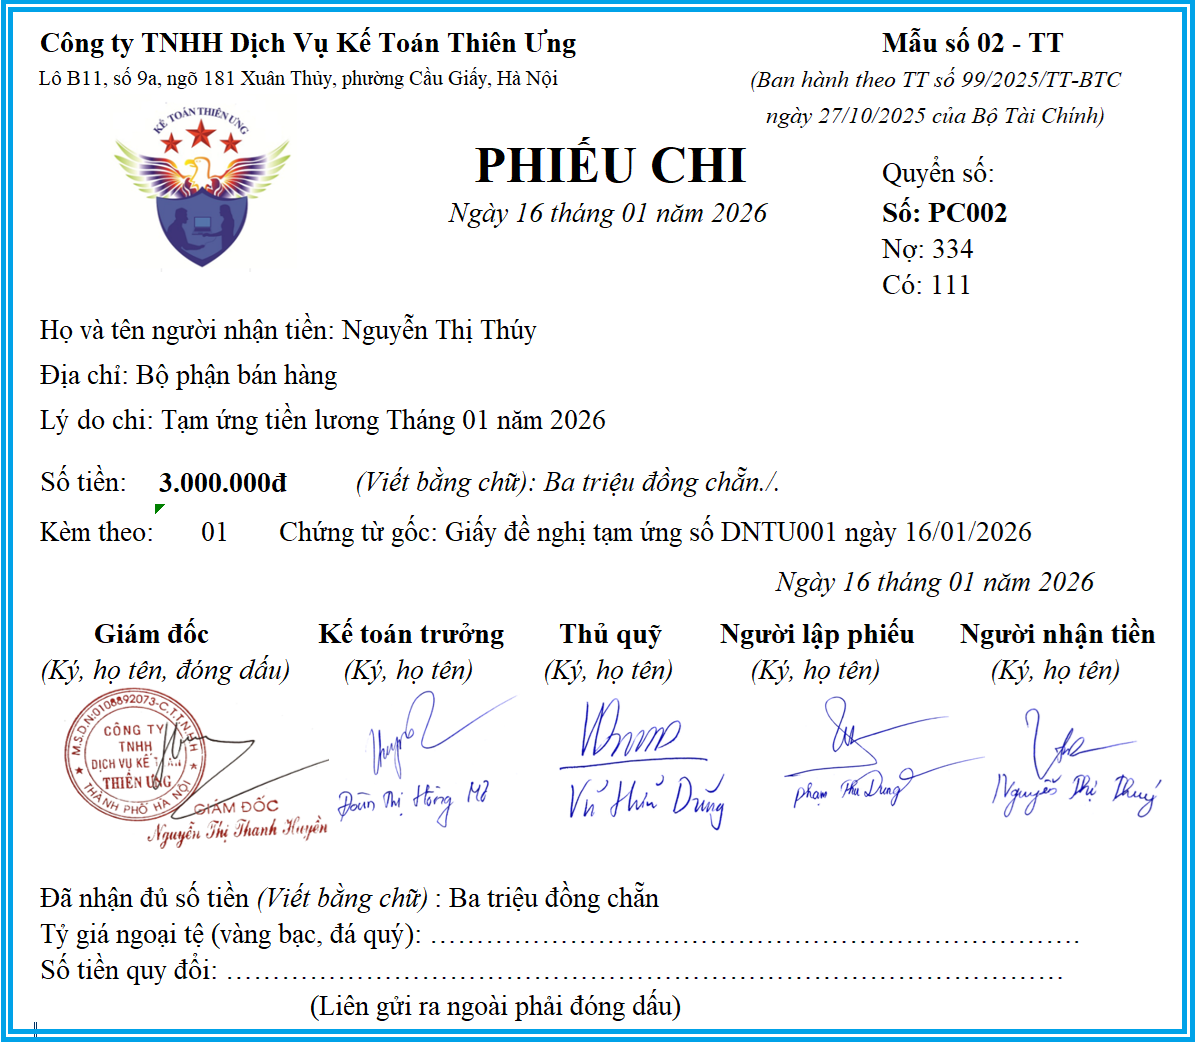 Công ty TNHH Dịch Vụ Kế Toán Thiên Ưng
Lô B11, số 9a, ngõ 181 Xuân Thủy, phường Cầu Giấy, Hà Nội
Mẫu số 02 - TT
(Ban hành theo TT số 99/2025/TT-BTC
ngày 27/10/2025 của Bộ Tài Chính)
KẾ TOÁN THIÊN ƯNG
PHIẾU CHI
Ngày 16 tháng 01 năm 2026
Quyển số:
Số: PC002
Nợ: 334
Có: 111
Họ và tên người nhận tiền: Nguyễn Thị Thúy
Địa chỉ: Bộ phận bán hàng
Lý do chi: Tạm ứng tiền lương Tháng 01 năm 2026
Số tiền: 3.000.000đ (Viết bằng chữ): Ba triệu đồng chẵn./.
Kèm theo: 01 Chứng từ gốc: Giấy đề nghị tạm ứng số DNTU001 ngày 16/01/2026
Ngày 16 tháng 01 năm 2026
Giám đốc Kế toán trưởng Thủ quỹ Người lập phiếu Người nhận tiền
(Ký, họ tên, đóng dấu) (Ký, họ tên) (Ký, họ tên) (Ký, họ tên) (Ký, họ tên)
M.S.D.N:0108892073-C.T.T.N.H.H
CÔNG TY
TNHH
DỊCH VỤ KẾ
THIÊN ƯNG
THÀNH PHỐ HÀ NỘI
GIÁM ĐỐC
Nguyễn Thị Thanh Huyền
Đoàn Thị Hồng
Vũ Dũng
Phạm Thu Dung
Nguyễn Thị Thuý
Đã nhận đủ số tiền (Viết bằng chữ) : Ba triệu đồng chẵn
Tỷ giá ngoại tệ (vàng bạc, đá quý): ……………………………………………………………….
Số tiền quy đổi: …………………………………………………………………………………
(Liên gửi ra ngoài phải đóng dấu)